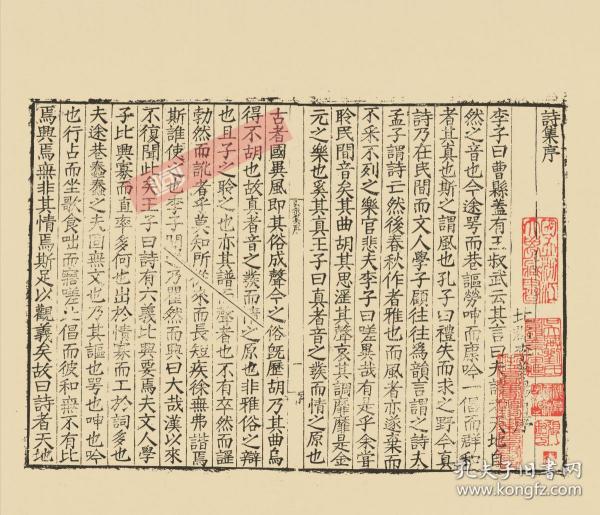 詩集序
李子曰曹縣蓋有王叔武云其言曰夫詩者天地自
然之音也今途咢而巷謳勞呻而康吟一倡而群和
者其真也斯之謂風也孔子曰禮失而求之野今真
詩乃在民間而文人學子顧往往為韻言謂之詩夫
孟子謂詩亡然後春秋作者雅也而風者亦遂棄而
不采不列之樂官悲夫李子曰嗟異哉有是乎余嘗
聆民間音矣其曲胡其思淫其聲哀其調靡靡是金
元之樂也奚其真王子曰真者音之發而情之原也
古者國異風即其俗成聲今之俗既歷胡乃其曲烏
得不胡也故真者音之發而情之原也非雅俗之辯
也且子之聆之也亦其譜而聲者也不有卒然而謡
勃然而訛者乎莫知所從來而長短疾徐無弗諧焉
斯誰使之也李子聞之乃矍然而興曰大哉漢以來
不復聞此矣王子曰詩有六義比興要焉夫文人學
子比興寡而直率多何也出於情寡而工於詞多也
夫途巷蠢蠢之夫固無文也乃其謳也咢也呻也吟
也行占而坐歌食咄而寤嗟此倡而彼和無不有比
焉興焉無非其情焉斯足以觀義矣故曰詩者天地
孔夫子旧书网
www.kongfz.com